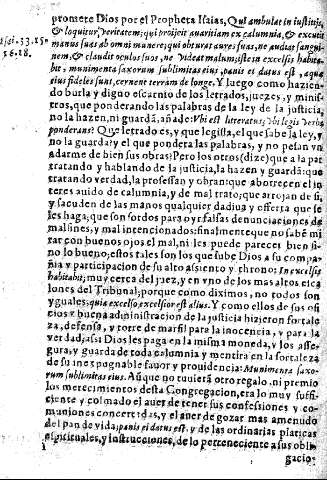 promete Dios por el Propheta Isaias, Qui ambulat in iustitijs,
& loquitur veritatem; qui proijcit auaritiam ex calumnia, & excutit
Isai. 33. 15.
manus suas ab omni munere; qui obturat aures suas, ne audiat sangui-
16. 18.
nem, & claudit oculos suos, ne videat malum; iste in excelsis habita-
bit, munimenta saxorum sublimitas eius, panis ei datus est, aquæ
eius fideles sunt, cernent terram de longe. Y luego como hazien-
do burla y digno escarnio de los letrados, juezes, y minis-
tros, que ponderando las palabras de la ley de la justicia,
no la hazen, ni guardã, añade: Vbi est litteratus? Vbi legis verba
ponderans? Que letrado es, y que legista, el que sabe la ley, y
no la guarda? y el que pondera las palabras, y no pesan vn
adarme de bien sus obras? Pero los otros (dize) que a la par
tratando y hablando de la justicia, la hazen y guardã: que
tratando verdad, la professan y obran: que aborrecen el in-
teres auido de calumnia, y de mal trato; que arrojan de si,
y sacuden de las manos qualquier dadiua y offerta que se
les haga; que son sordos para oyr falsas denunciaciones de
malsines, y mal intencionados: finalmente que no sabẽ mi
rar con buenos ojos el mal, ni les puede parecer bien si-
no lo bueno; estos tales son los que sube Dios a su compa-
ñia y participacion de su alto assiento y throno: In excelsis
habitabit; muy cerca del juez, y en vno de los mas altos esca
lones del Tribunal; porque como diximos, no todos son
yguales; quia excelso, excelsior est alius. Y como ellos de sus ofi
cios y buena administracion de la justicia hizieron fortale
za, defensa, y torre de marfil para la inocencia, y para la
verdad; assi Dios les paga en la misma moneda, y los asse-
gura, y guarda de toda calumnia y mentira en la fortaleza
de su inexpugnable fauor y prouidencia: Munimenta saxo-
rum sublimitas eius. Aũque no tuuierã otro regalo, ni premio
los merecimientos desta Congregacion, era lo muy suffi-
ciente y colmado el auer de tener sus confessiones y co-
muniones concertadas, y el auer de gozar mas amenudo
del pan de vida; panis ei datus est, y de las ordinarias platicas
espirituales, y instrucciones, de lo perteneciente a sus obli-
gacio-